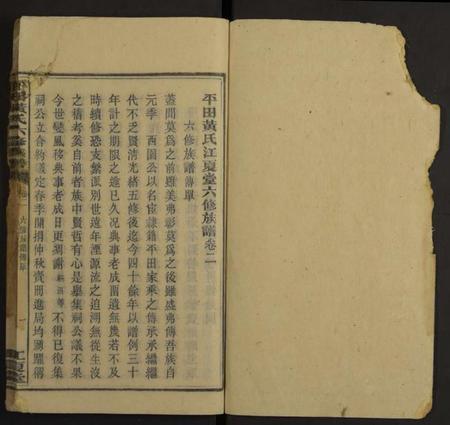 平田黃氏江夏堂六修族譜卷二
六修族譜傳單
蓋聞莫爲之前雖美弗彰莫爲之後雖盛弗傳吾族自
元季 西園公以名宦隸籍平田家乘之傳承承繼繼
代不乏賢清光緒五修後迄今四十餘年以譜例三十
年計之期限之逾已久典事老成凋遺無幾若不及
時續修恐支繁派別世遠年湮源流之追溯無從生沒
之稽考奚自前者族中賢哲有心是舉集祠公議不果
今世變風移典事老成日更凋謝 等不得已復集
祠公立合約議定春季開捐仲秋齎而進局均踴躍傳
平田黃氏六修族譜
卷二
六修族譜傳單
一
江夏堂